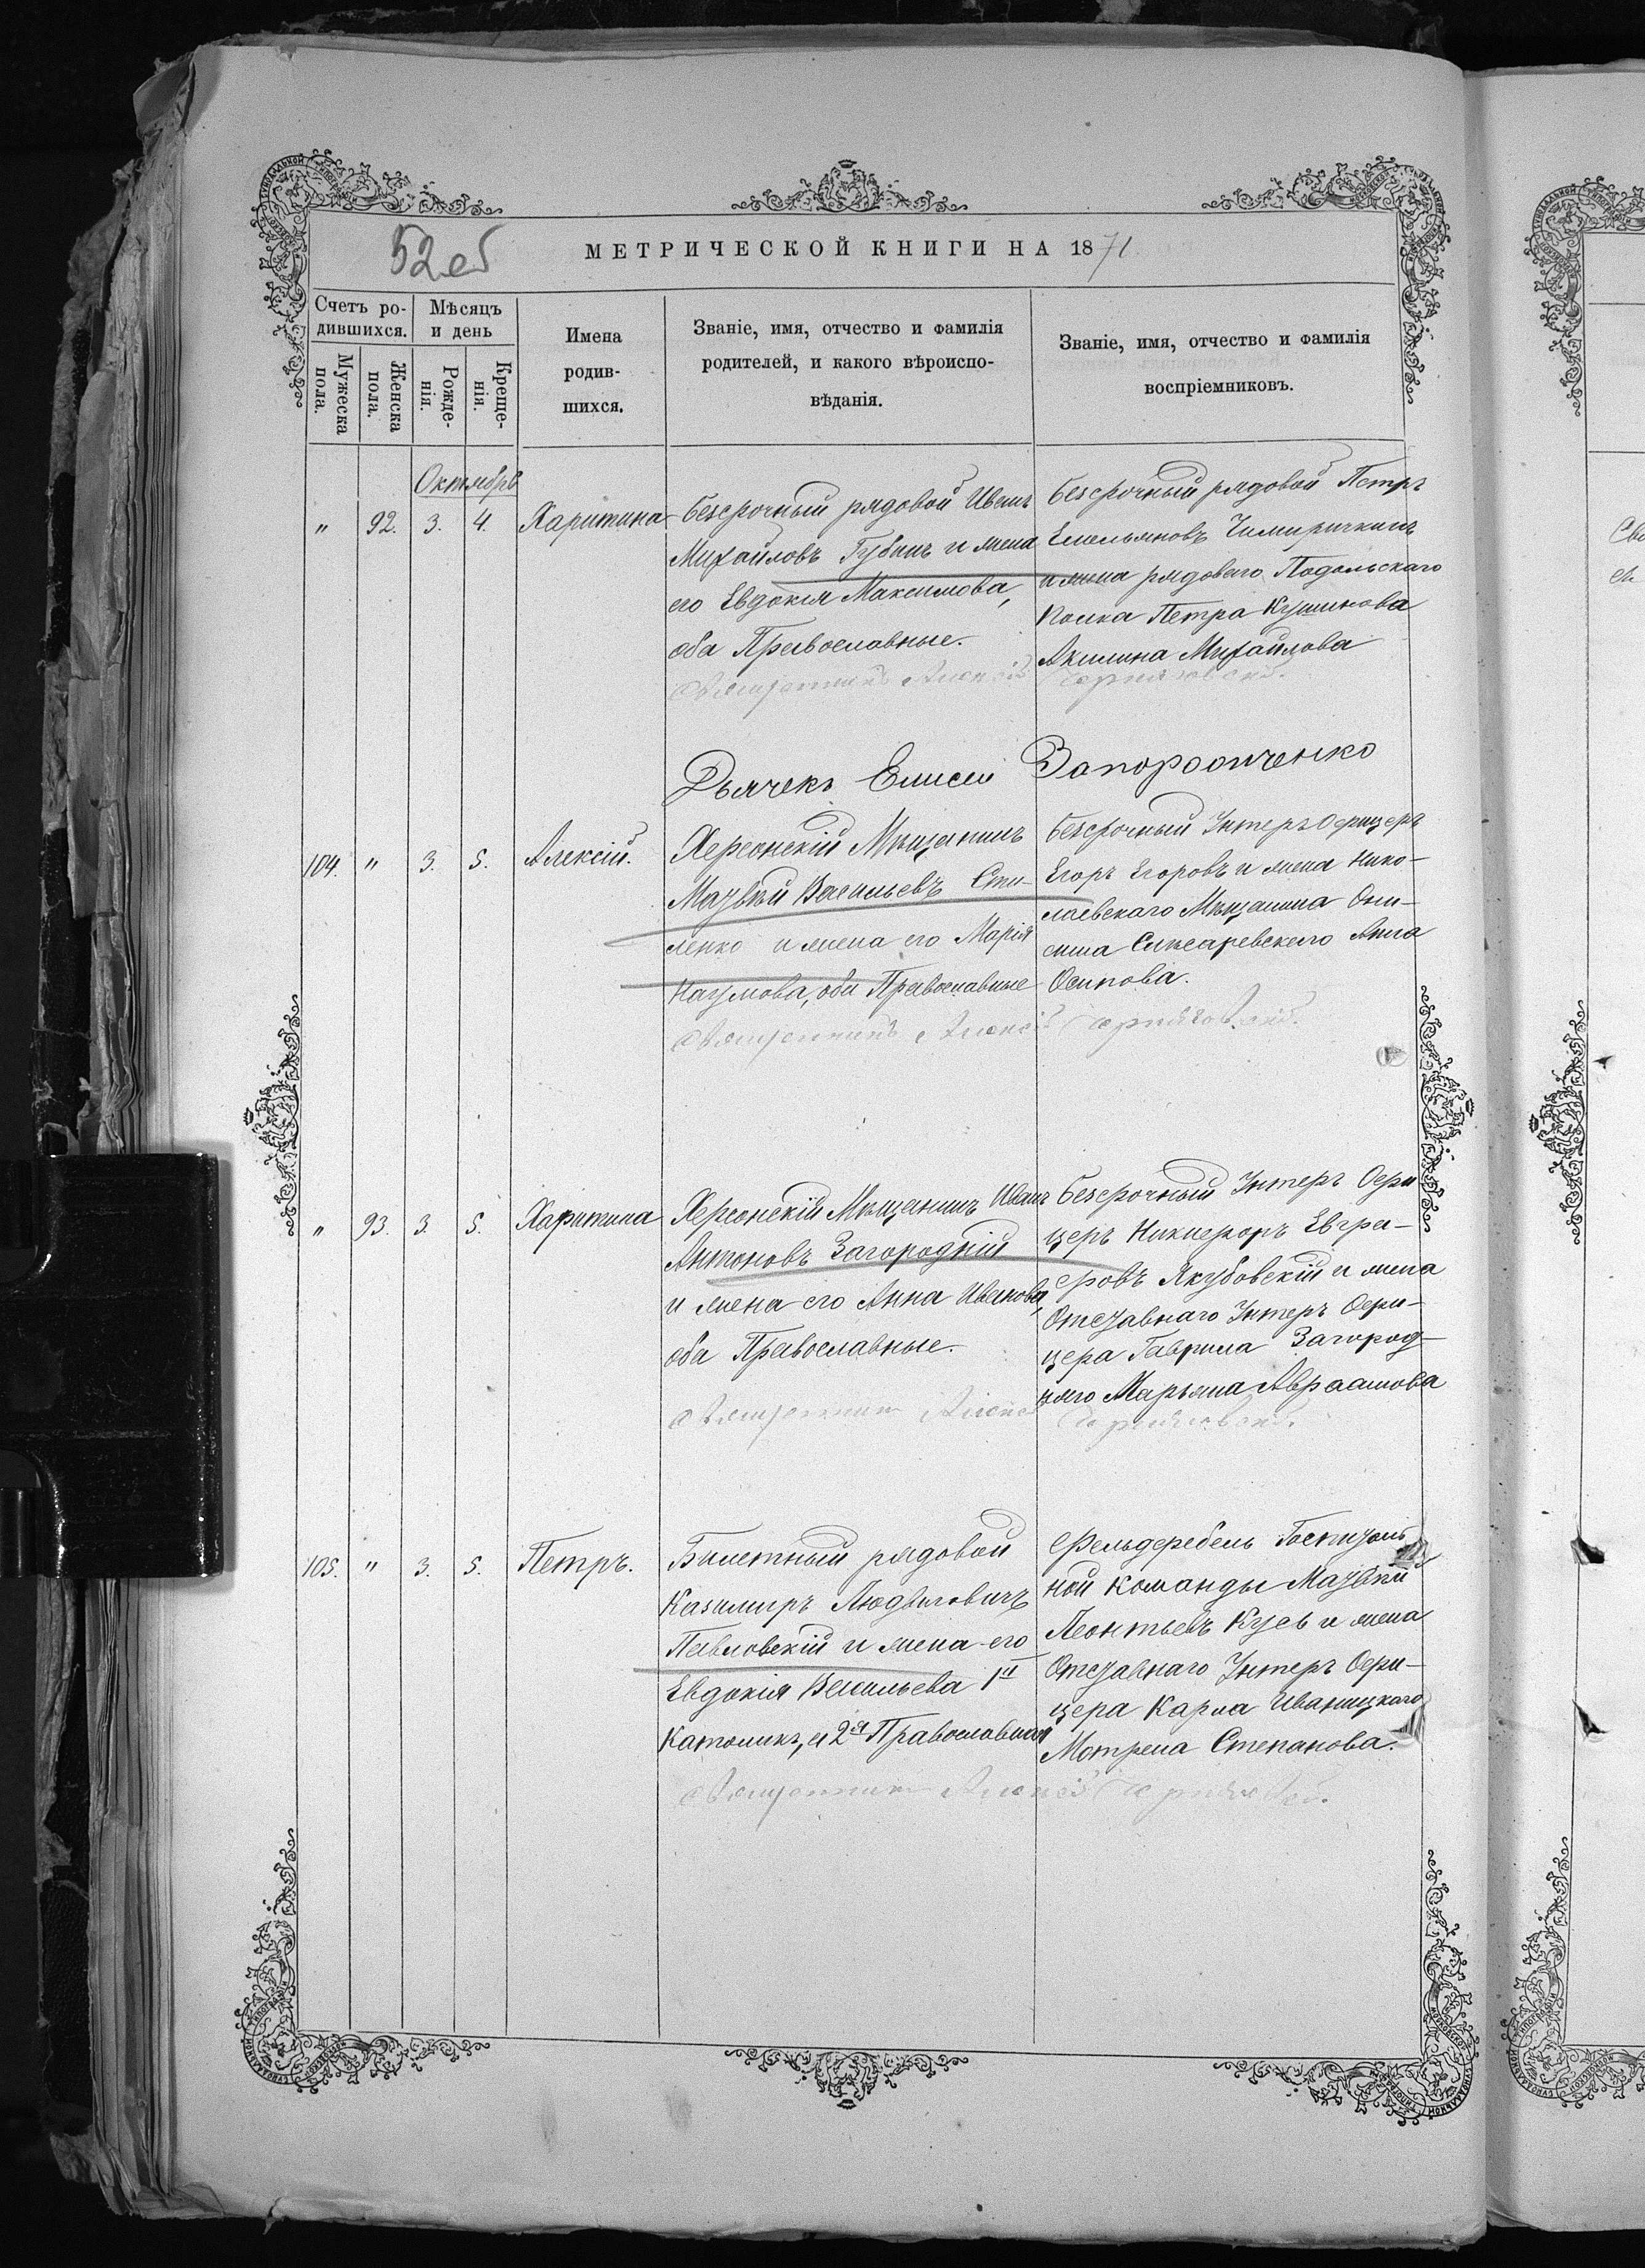 52 об
МЕТРИЧЕСКОЙ КНИГИ НА 1871
Счетъ ро-
дившихся.
Мѣсяцъ
и день
Мужеска
пола.
Женска
пола.
Рожде-
нія.
Креще-
нія.
Имена
родив-
шихся.
Званіе, имя, отчество и фамилія
родителей, и какого вѣроиспо-
вѣданія.
Званіе, имя, отчество и фамилія
воспріемниковъ.
Октябрь
" 92. 3. 4. Харитина
Безсрочный рядовой Иванъ
Михайловъ Губинъ и жена
его Евдокія Максимова,
оба Православные.
Безсрочный рядовой Петръ
Емельяновъ
и жена рядоваго Подольскаго
Полка Петра Кушнкова
Акилина Михайлова
Священникъ Алексій
Дьячекъ Елисей Запорощенко
104. " 3. 5. Алексій.
Херсонскій Мѣщанинъ
Матвѣй Васильевъ Сти-
ленко и жена его Марія
Наумова, оба Православные
Безсрочный Унтеръ Офицеръ
Егоръ Егоровъ и жена Нико-
лаевскаго Мѣщанина Они-
сима Слюсаревскаго Анна
Осипова.
Священникъ Алексій
" 93. 3. 5. Харитина
Херсонскій Мѣщанинъ Иванъ
Антоновъ Загородній
и жена его Анна Иванова,
оба Православные.
Безсрочный Унтеръ Офи
церъ Никифоръ Евгра-
фовъ Якубовскій и жена
Отставнаго Унтеръ Офи-
цера Гаврила Загород-
няго Марьяна Авраамова
Священникъ Алексій
105. " 3. 5. Петръ.
Билетный рядовой
Казимиръ Людвиговичъ
Павловскій и жена его
Евдокія Васильева 1й
Католикъ, а 2я Православная
Фельдфебель Госпиталь
ной команды Матвѣй
Леонтьевъ Кусь и жена
Отставнаго Унтеръ Офи-
цера Карла Иваницкаго
Мотрена Степанова.
Священникъ Алексій